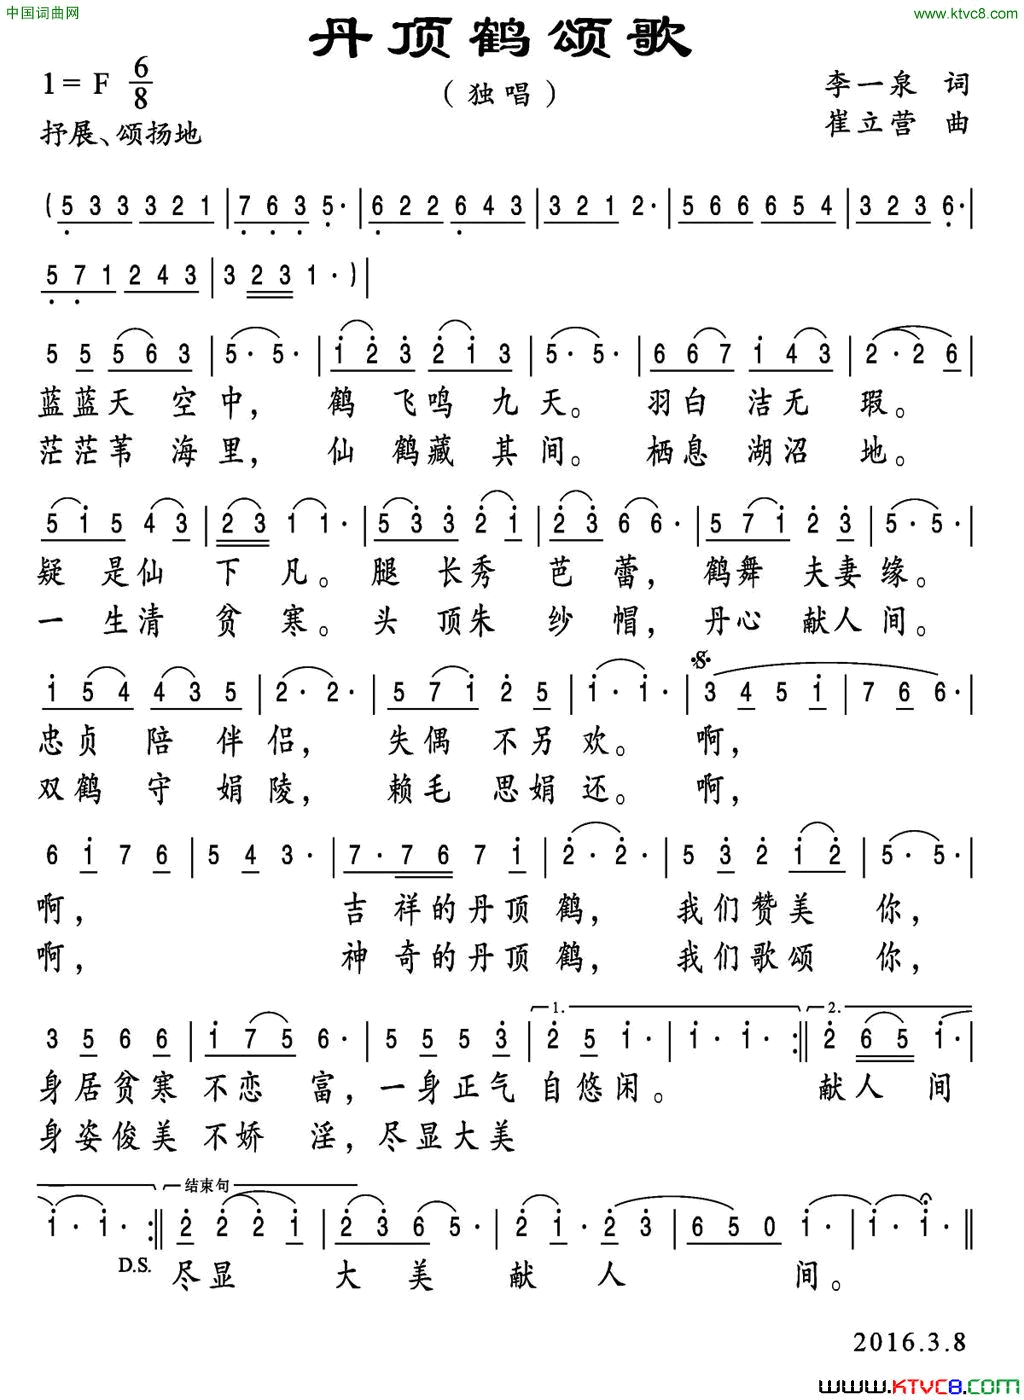 中国词曲网
www.ktvc8.com
丹顶鹤颂歌
1= F 6/8
（独唱）
李一泉 词
抒展、颂扬地
崔立营 曲
( 5 3 3 3 2 1 | 7 6 3 5· | 6 2 2 6 4 3 | 3 2 1 2· | 5 6 6 6 5 4 | 3 2 3 6· |
5 7 1 2 4 3 | 3 2 3 1· ) |
5 5 5 6 3 | 5· 5· | 1 2 3 2 1 3 | 5· 5· | 6 6 7 1 4 3 | 2· 2 6 |
蓝蓝天 空中， 鹤 飞鸣 九天。 羽白 洁无 瑕。
茫茫苇 海里， 仙 鹤藏 其间。 栖息 湖沼 地。
5 1 5 4 3 | 2 3 1 1· | 5 3 3 2 1 | 2 3 6 6· | 5 7 1 2 3 | 5· 5· |
疑 是仙 下 凡。 腿 长秀 芭 蕾， 鹤舞 夫妻缘。
一 生清 贫 寒。 头 顶朱 纱 帽， 丹心 献人间。
1 5 4 4 3 5 | 2· 2· | 5 7 1 2 5 | 1· 1· | 3 4 5 1 | 7 6 6· |
忠贞 陪 伴 侣， 失偶 不另 欢。 啊，
双鹤 守 娟陵， 赖毛 思娟还。 啊，
6 1 7 6 | 5 4 3· | 7· 7 6 7 1 | 2· 2· | 5 3 2 1 2 | 5· 5· |
啊， 吉 祥的丹顶 鹤， 我们赞美 你，
啊， 神 奇的丹顶 鹤， 我们歌颂 你，
1. 2.
3 5 6 6 | 1 7 5 6· | 5 5 5 3 | 2 5 1· | 1· 1· :‖ 2 6 5 1· |
身居贫寒 不恋 富，一身正气 自悠闲。 献人 间
身姿俊美 不娇 淫，尽显大美
结束句
1· 1· :‖ 2 2 2 1 | 2 3 6 5· | 2 1· 2 3 | 6 5 0 1· | 1· 1· ‖
D.S.
尽显 大 美 献 人 间。
2016.3.8
WWW.KTVC8.COM